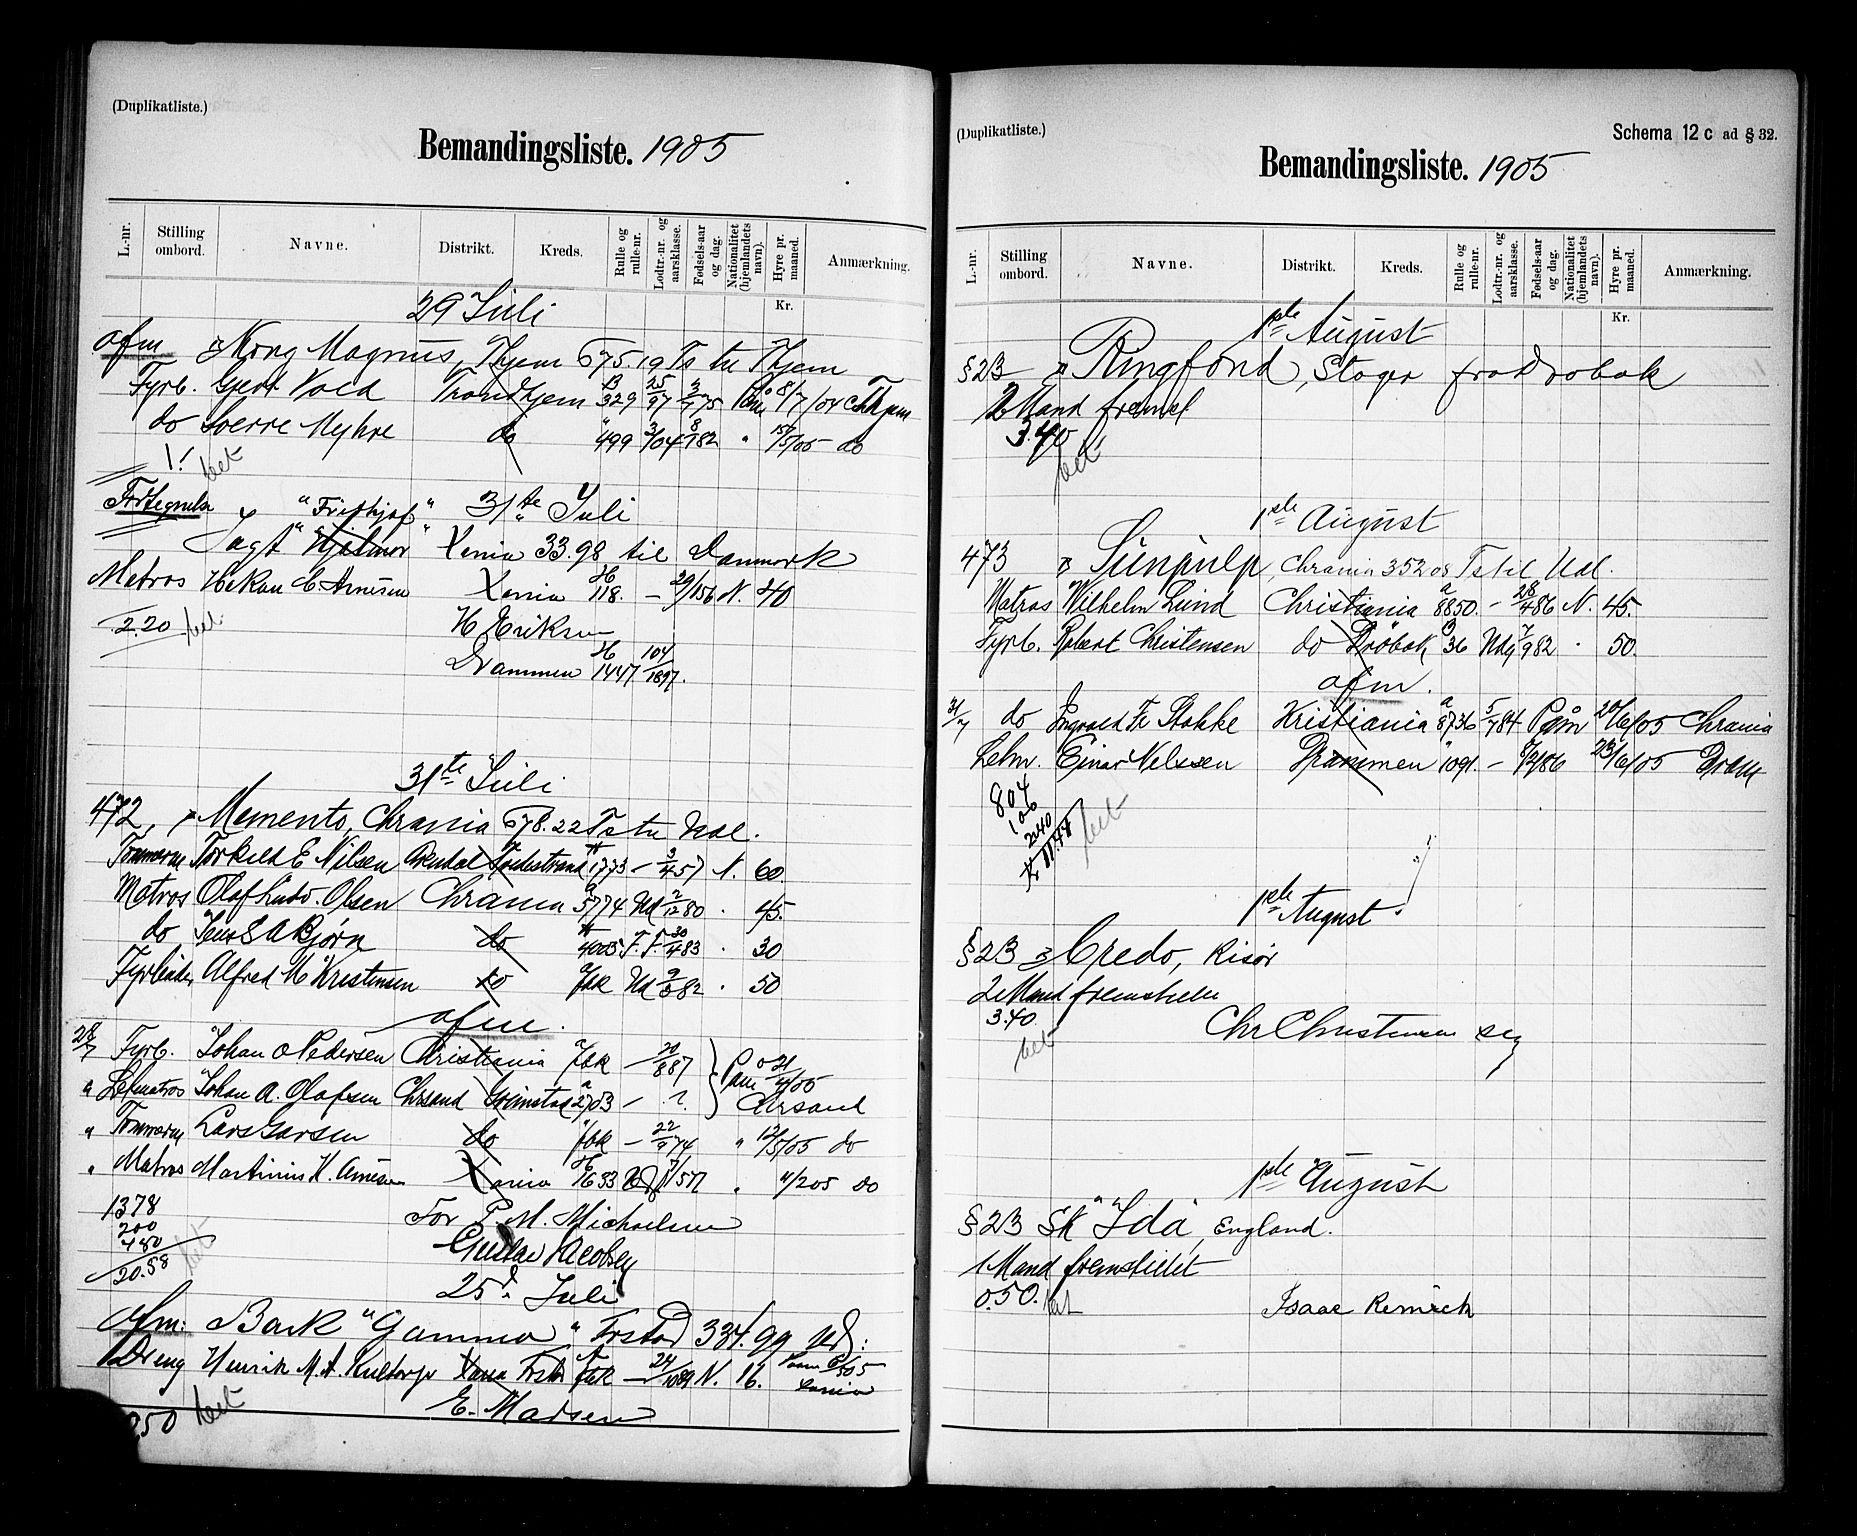 (Duplikatliste.)
Bemandingsliste. 1905
L.-nr. Stilling ombord. Navne. Distrikt. Kreds. Rulle og rulle-nr. Lodtr.-nr. og aarsklasse. Fødsels-aar og dag. Nationalitet (hjemlandets navn). Hyre pr. maaned. Anmærkning.
Kr.
29 Juli
afm Kong Magnus, Thjem 675.19 Ts til Thjem
Fyrb. Gjert Vold Trondhjem B 329 25/97 3/775 8/7/05
do Sverre Myhre do " 499 3/04 8/782 " 15/5/05 do
1!
bet
Fortegnelse "Fridthjof" 31te Juli
Jagt "Hjelmar" Xania 33.98 til Danmark
Matros Hakan C Arnesen Xania H 118. – 29/156 N. 40
2.20 bet
H Eriksen
Drammen H 1447 104/1897.
31te Juli
472, Memento, Chrania 678.22 Ts til Udl.
Tømmerm Torkild E Nilsen Arendal 1773 – 3/457 N. 60.
Matros Olaf Ludv. Olsen Chrania a 5774 Ud 2/1280 . 45.
do Jens S A Bjørn do 4005 F.F. 30/483 . 30
Fyrbøder Alfred M Kristensen do a fbk Ud 82 . 50
afm.
28/7 Fyrb. Johan O Pedersen Christiania a fbk – 20/887 Paam 21/4/05
" Letmatros Johan A. Olafsen Chrsand Grimstad a 2703 – ?. Chrsand
" Tømmerm Lars Larsen do fbk – 22/974 " 12/5/05 do
" Matros Martinius H. Arnesen Xania H 1633 " 4/205 do
1378
200
480
20.58
bet
For P. M. Michaelsen
Gustav Jacobsen
25d. Juli
Afm: Bark "Gamma" Frstad 334.99
Dreng Henrik M. A. Xania Frstd fbk – 24/1089 N. 16. Paam 6/505 Xania
E. Madsen
250 bet
(Duplikatliste.)
Schema 12 c ad § 32.
Bemandingsliste. 1905
L.-nr. Stilling ombord. Navne. Distrikt. Kreds. Rulle og rulle-nr. Lodtr.-nr. og aarsklasse. Fødsels-aar og dag. Nationalitet (hjemlandets navn). Hyre pr. maaned. Anmærkning.
Kr.
1ste August
§23 Ringfond, fra Drobak
2 Mand fremst
3.40
bet
1ste August
473 Sunpulp, Chrania 352 Ts til Udl.
Matros Wilhelm Lund Christiania a 8850. – 28/486 N. 45.
Fyrb. Robert Christensen do Drøbak 36 Udg 7/982 . 50.
afm.
31/7 do Ingvald Fr Stokke Kristiania a 8736 5/784 Påm 20/6/05 Chrania
Letm. Einar Nelssen Drammen " 1091. – 8/1286 23/6/05 Dram
804
100
240
Kr 11.44
bet
1ste August
§23 Credo, Risør
2 Mand fremstillet
3.40.
bet
Chr Christensen
1ste August
§23 Sk "Ida", England.
1 Mand fremstillet
0.50. bet
Isaac Remick